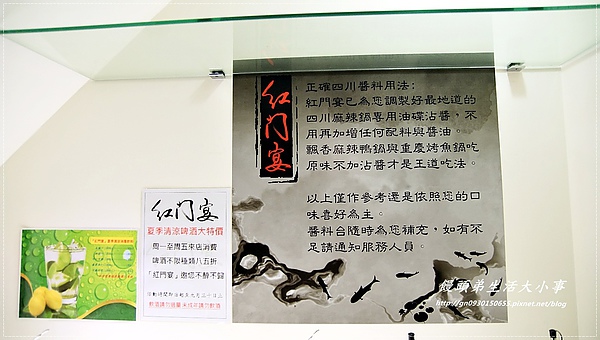 紅門宴
正確四川醬料用法:
紅門宴已為您調製好最地道的
四川麻辣鍋專用油碟沾醬，不
用再加增任何配料與醬油。
飄香麻辣鴨鍋與重慶烤魚鍋吃
原味不加沾醬才是王道吃法。
以上僅作參考還是依照您的口
味喜好為主。
醬料台隨時為您補充，如有不
足請通知服務人員。
紅門宴
夏季清涼啤酒大特價
周一至周五來店消費
啤酒不限種類八五折
「紅門宴」邀您不醉不歸
飲酒請勿過量 未成年請勿飲酒
饅頭弟生活大小事
http://gn0930150655.pixnet.net/blog